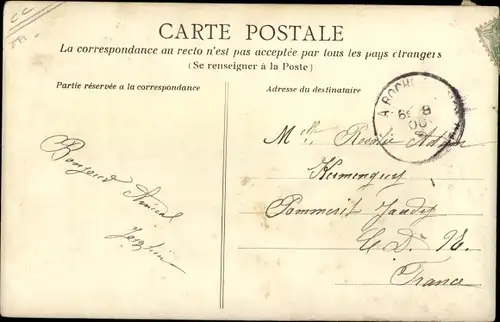 CC
CARTE POSTALE
La correspondance au recto n'est pas acceptée par tous les pays étrangers
(Se renseigner à la Poste)
Partie réservée à la correspondance
Adresse du destinataire
A ROCHE
Mlle Rosalie Adam
Kermenguy
Pommerit Jaudy
C. D. N.
France
Bonjour Amical